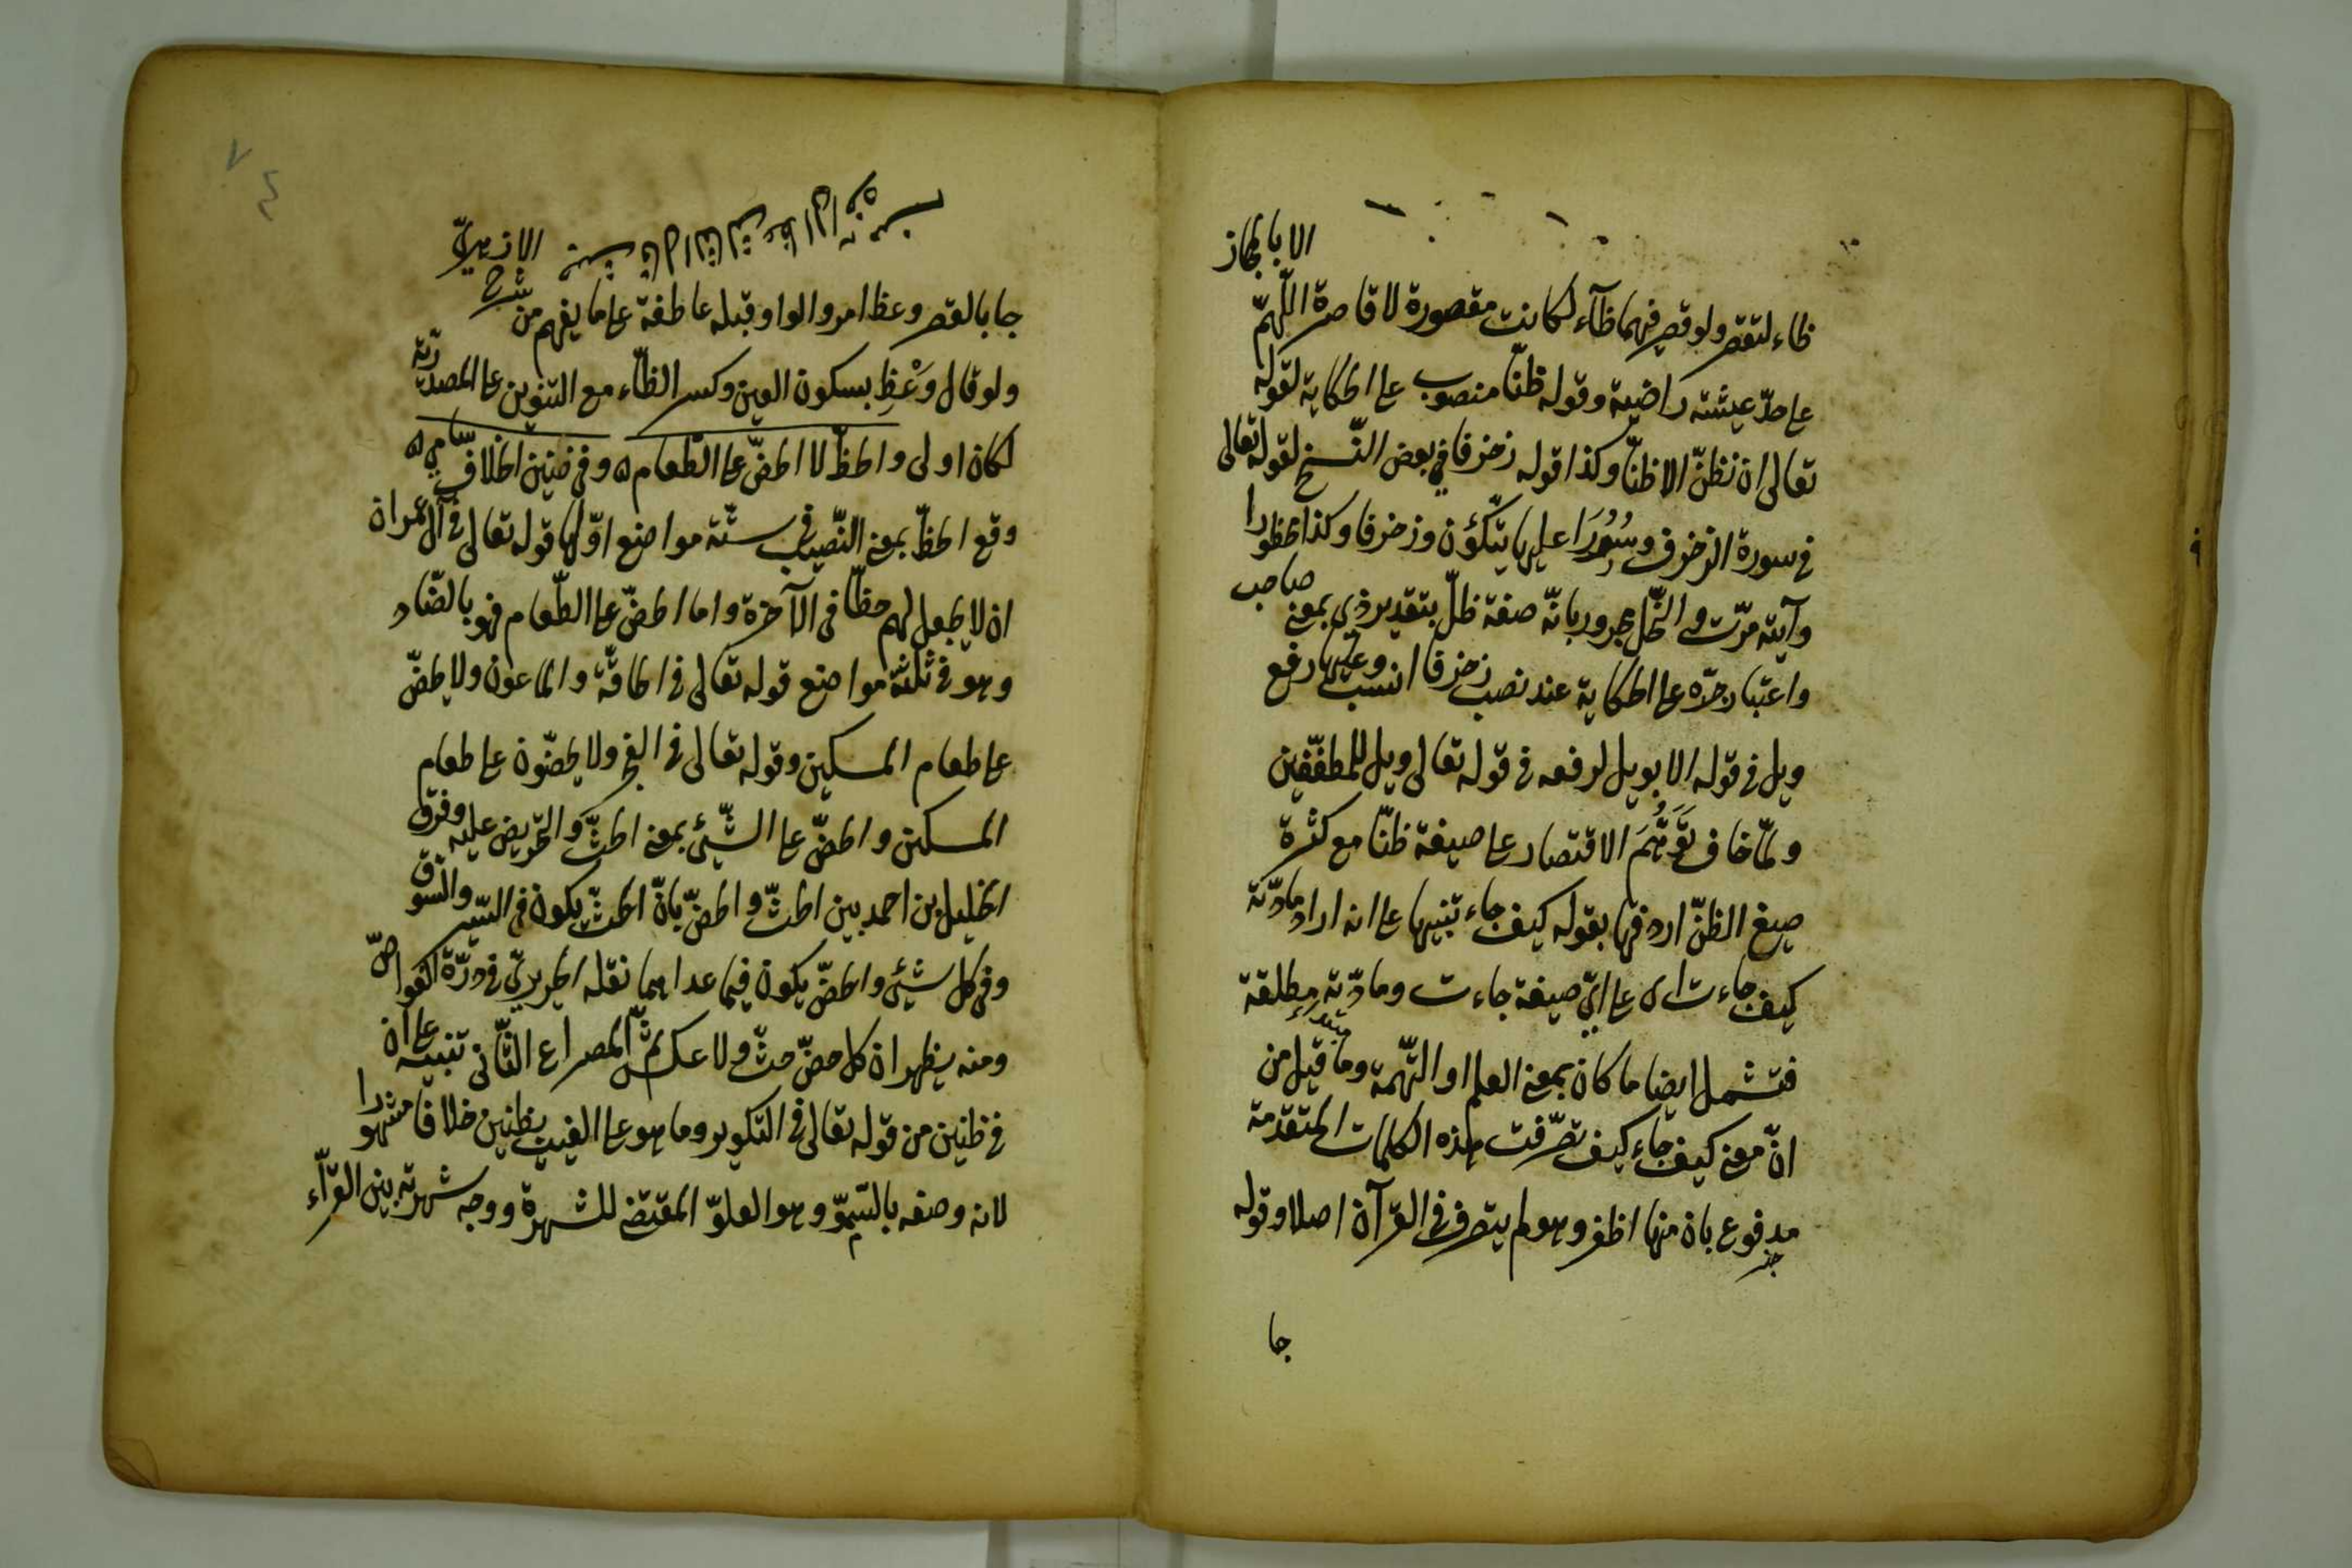 الا بايجاز
ظاء لتقصر ولو قصر فيهما ظآء لكانت مقصورة لا قاصرة اللّهمّ
على حدّ عيشته راضية وقوله ظنّا منصوب على الحكاية لقوله
تعالى ان نظنّ الا ظنّا وكذا قوله زخرفا في بعض النّسخ لقوله تعالى
في سورة الزخرف وسُرُرًا عليها يتّكؤن وزخرفا وكذا
وآيته مرّت النّحل مجرور بانّه صفة ظلّ بتقدير ذي بمعنى صاحب
واعتبار جرّه على الحكاية عند نصب زخرفا انسب وعليها رفع
ويل في قوله الا بويل لرفعه في قوله تعالى ويل للمطفّفين
ولمّا خاف تَوَهُّمَ الاقتصار على صيغة ظنّا مع كثرة
صيغ الظنّ اردفها بقوله كيف جاء تنبيها على انه اراد مادّته
كيف جاءت اى على ايّ صيغة جاءت ومادّته مطلقة
فتشمل ايضا ما كان بمعنى العلم او التّهمة وما قيل من
مبتدء
انّ معنى كيف جاء كيف تصّرفت هذه الكلمات المتقدمة
مدفوع بان منها اظفر وهو لم يتصرف في القرآن اصلا وقوله
خبر
جا
٧٤
جا بالقصر وعظ امر والواو قبله عاطفة على ما يفهم من شرح الازهريّ
ولو قال وَعْظِ بسكون العين وكسر الظّاء مع التنوين على المصدريّة
لكان اولى والحظّ لا الحضّ على الطّعام ٥ وفي ضنين الخلاف سامي ٥
وقع الحظّ بمعنى النّصيب في ستّة مواضع اوّلها قوله تعالى في آل عمران
ان لا يجعل لهم حظّا في الآخرة واما الحضّ على الطّعام فهو بالضّاد
وهو في ثلثة مواضع قوله تعالى في الحاقّة والماعون ولا يحضّ
على طعام المسكين وقوله تعالى في الفجر ولا يحضّون على طعام
المسكين والحضّ على الشّيئ بمعنى الحثّ والتحريض عليه وفرق
الخليل بن احمد بين الحثّ والحضّ بانّ الحثّ يكون في السّير والسّوق
وفي كل شيئ والحضّ يكون فيما عداهما نقله الحريريّ في درّة الغواصّ
ومنه يظهر ان كل حضّ حثّ ولا عكس ثمّ المصراع الثّاني تنبيه على ان
في ظنين من قوله تعالى في التكوير وما هو على الغيب بظنين خلافا مشهورا
لانه وصفه بالسّموّ وهو العلوّ المقتضى للشهرة ووجه شهرته بين القرّآء